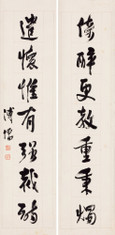 倚醉更教重秉燭
遣懷惟有强裁
溥